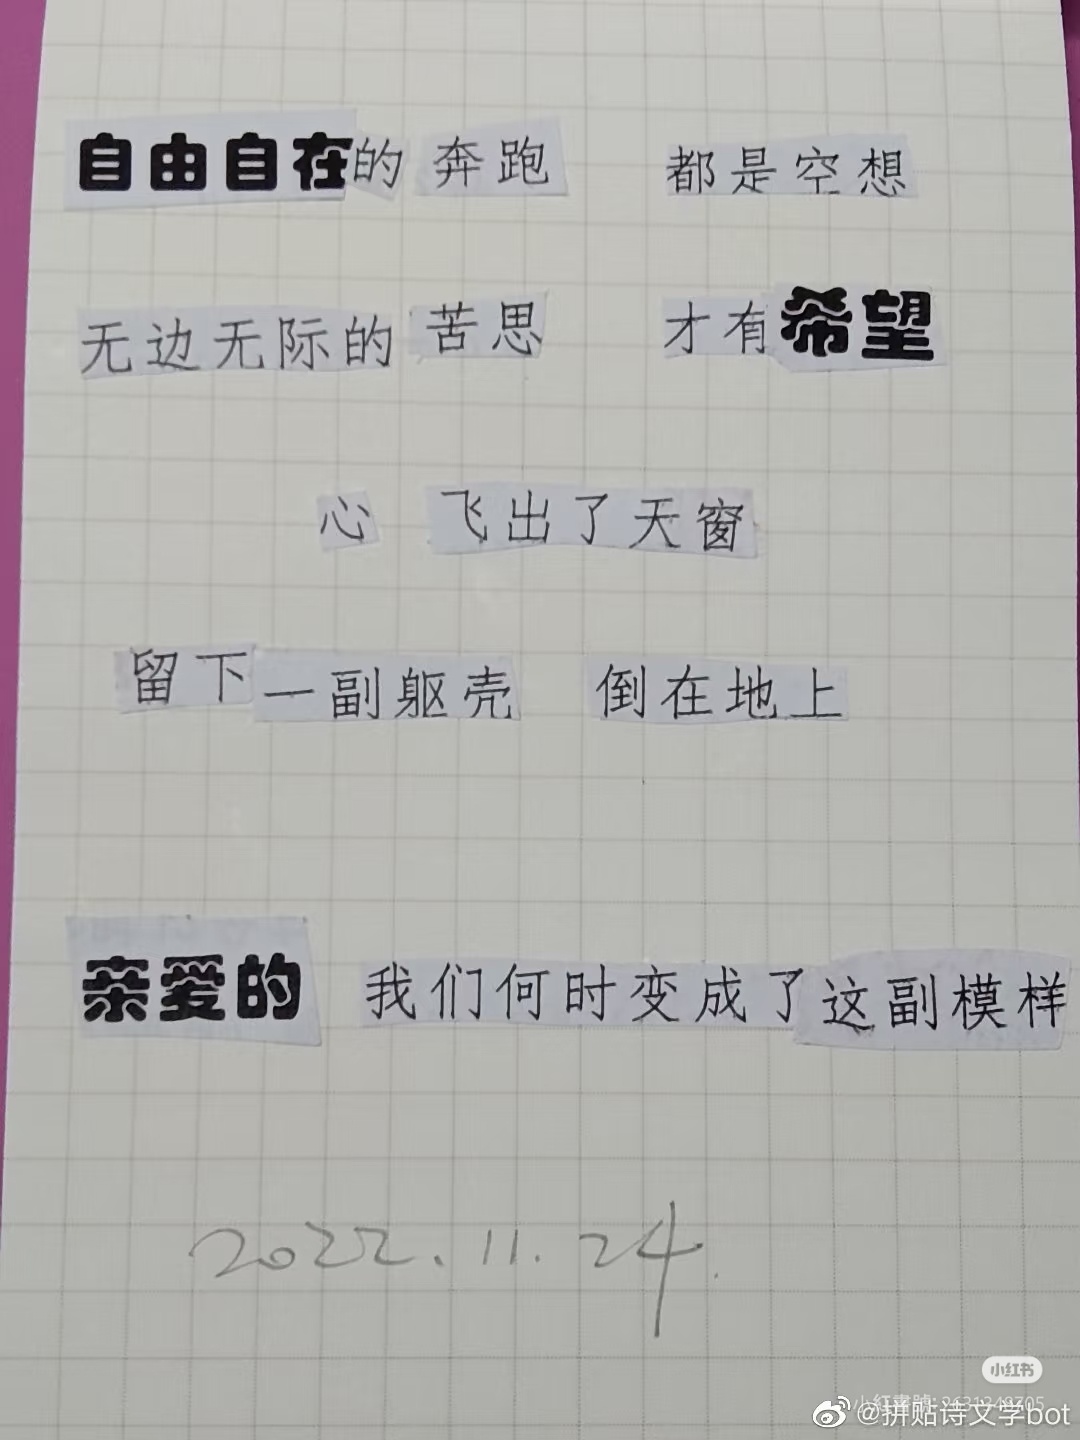 自由自在的 奔跑 都是空想
无边无际的 苦思 才有希望
心 飞出了天窗
留下一副躯壳 倒在地上
亲爱的 我们何时变成了这副模样
2022.11.24.
小红书
@拼贴诗文学bot